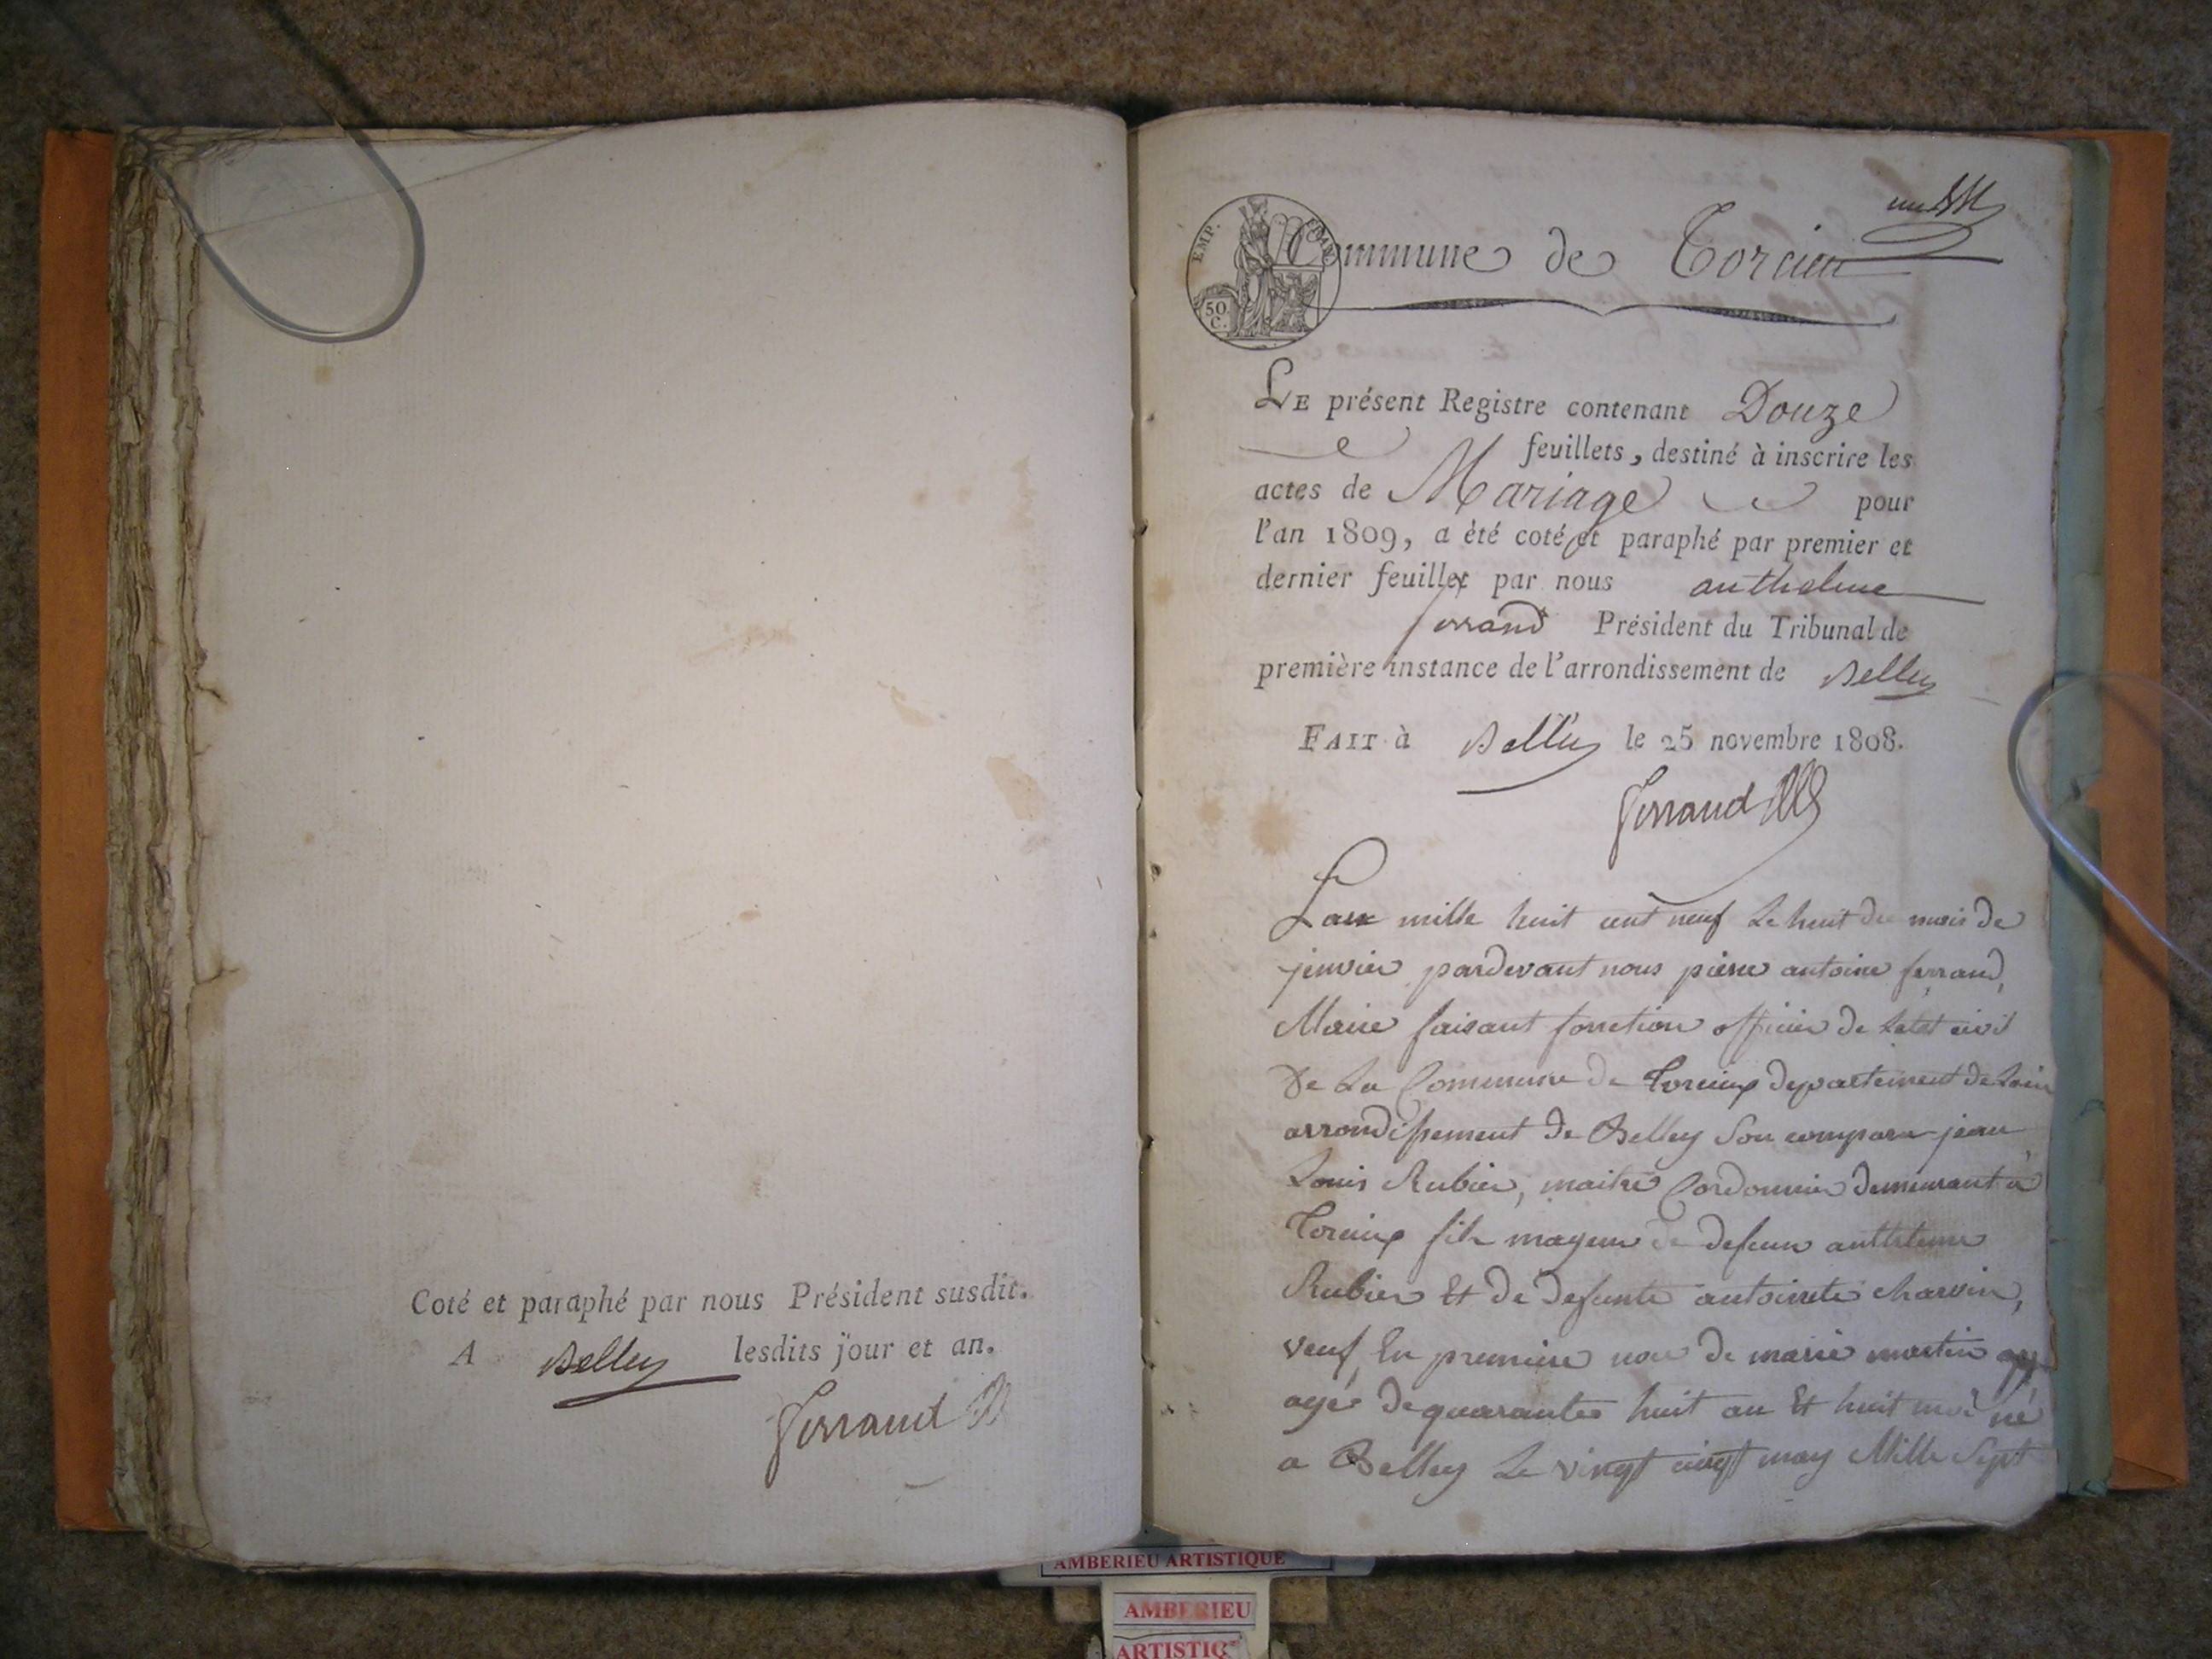 Coté et paraphé par nous Président susdit.
A Belley lesdits jour et an.
Ferrand
EMP. FRAN.
50
C.
un
Commune de Torcieu
LE présent Registre contenant Douze
feuillets, destiné à inscrire les
actes de Mariage pour
l'an 1809, a été coté et paraphé par premier et
dernier feuillet par nous anthelme
ferrand Président du Tribunal de
première instance de l'arrondissement de Belley
FAIT à Belley le 25 novembre 1808.
Ferrand
Lan mille huit cent neuf Le huit du mois de
jenvier pardevant nous pierre antoine ferrand,
Maire faisant fonction officier de Letat civil
De La Commune de Torcieux departement de Lain
arrondissement de Belley Son comparu jean
Louis Rubier, maitre Cordonnier demeurant a
Torcieux fils mageur de defeun anthelme
Rubier Et de defunte antoinete charvin,
veuf En premiere noce de marie martin
agé de quarante huit an Et huit moi né
a Belley Le vingt cinq may Mille Sept
AMBERIEU ARTISTIQUE
AMBERIEU
ARTISTIQ